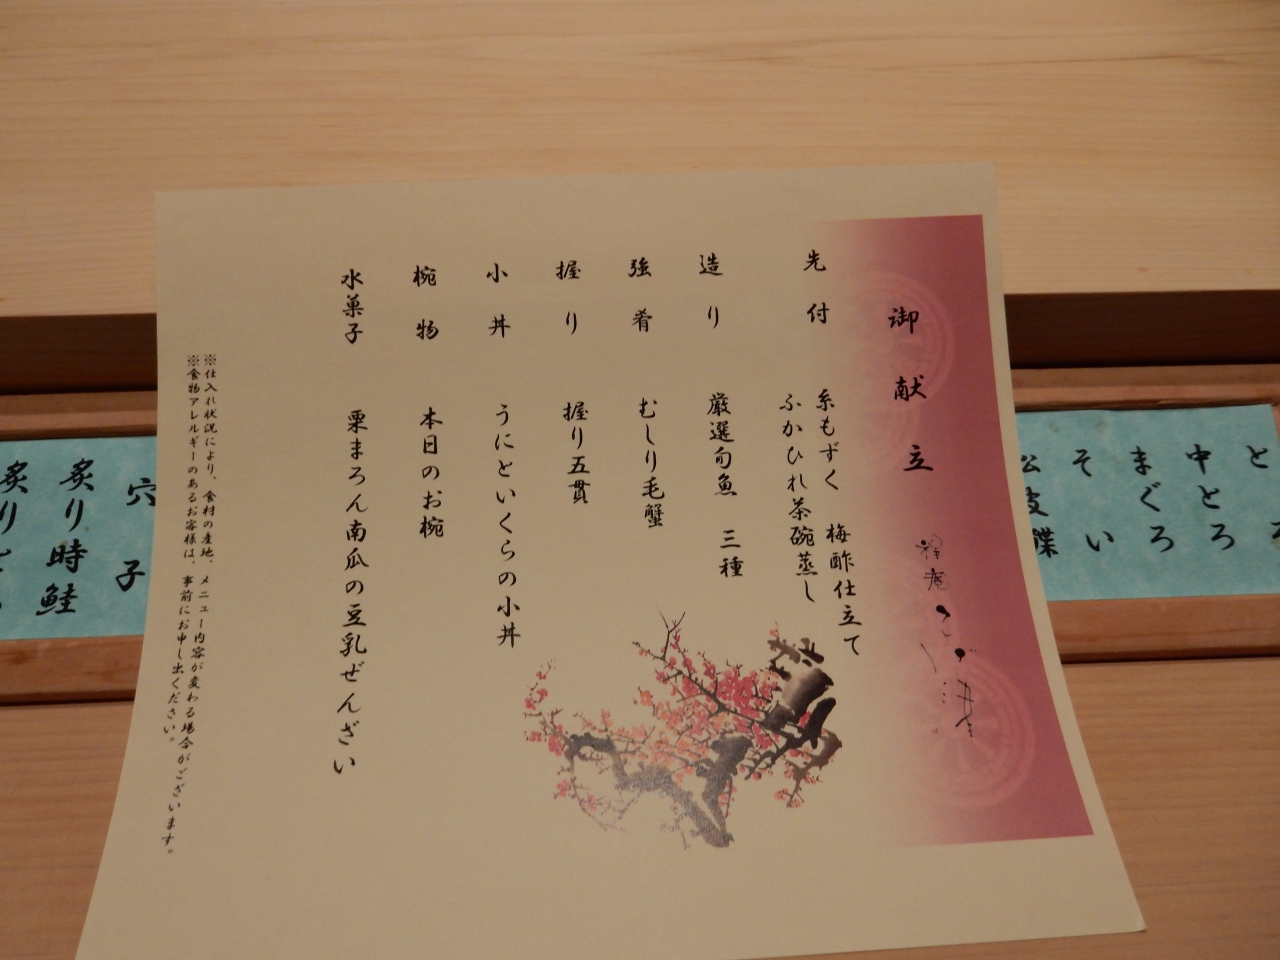 御献立
先付
糸もずく 梅酢仕立て
ふかひれ茶碗蒸し
造り
厳選旬魚 三種
強肴
むしり毛蟹
握り
握り五貫
小丼
うにといくらの小丼
椀物
本日のお椀
水菓子
栗まろん南瓜の豆乳ぜんざい
※仕入れ状況により、食材の産地、メニュー内容が変わる場合がございます。
※食物アレルギーのあるお客様は、事前にお申し出ください。
中とろ
まぐろ
そい
穴子
炙り時鮭
炙り